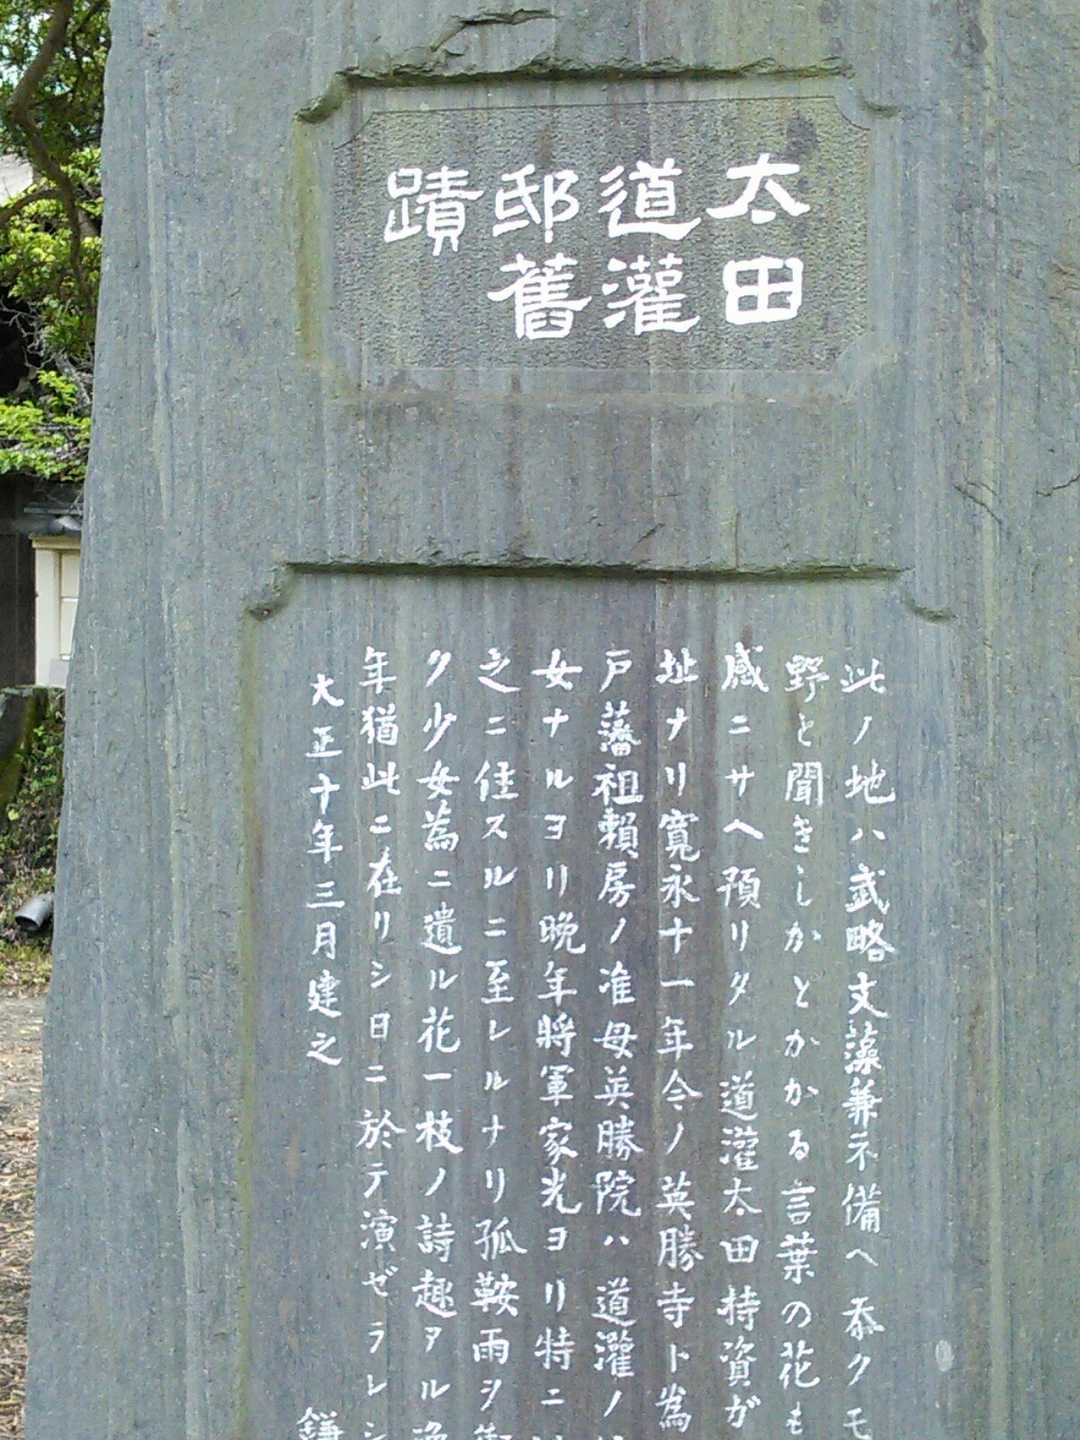 太田
道灌
邸舊
蹟
此ノ地ハ武略文藻兼ネ備ヘ忝クモ
野と聞きしかどかかる言葉の花も
感ニサヘ預リタル道灌太田持資ガ
址ナリ寛永十一年今ノ英勝寺ト為
戸藩祖頼房ノ准母英勝院ハ道灌ノ
女ナルヨリ晩年将軍家光ヨリ特ニ
之ニ住スルニ至レルナリ孤鞍雨シ
ク少女為ニ遺ル花一枝ノ詩趣アル
年猶此ニ在リシ日ニ於テ演ゼラレシ
大正十年三月建之
鎌